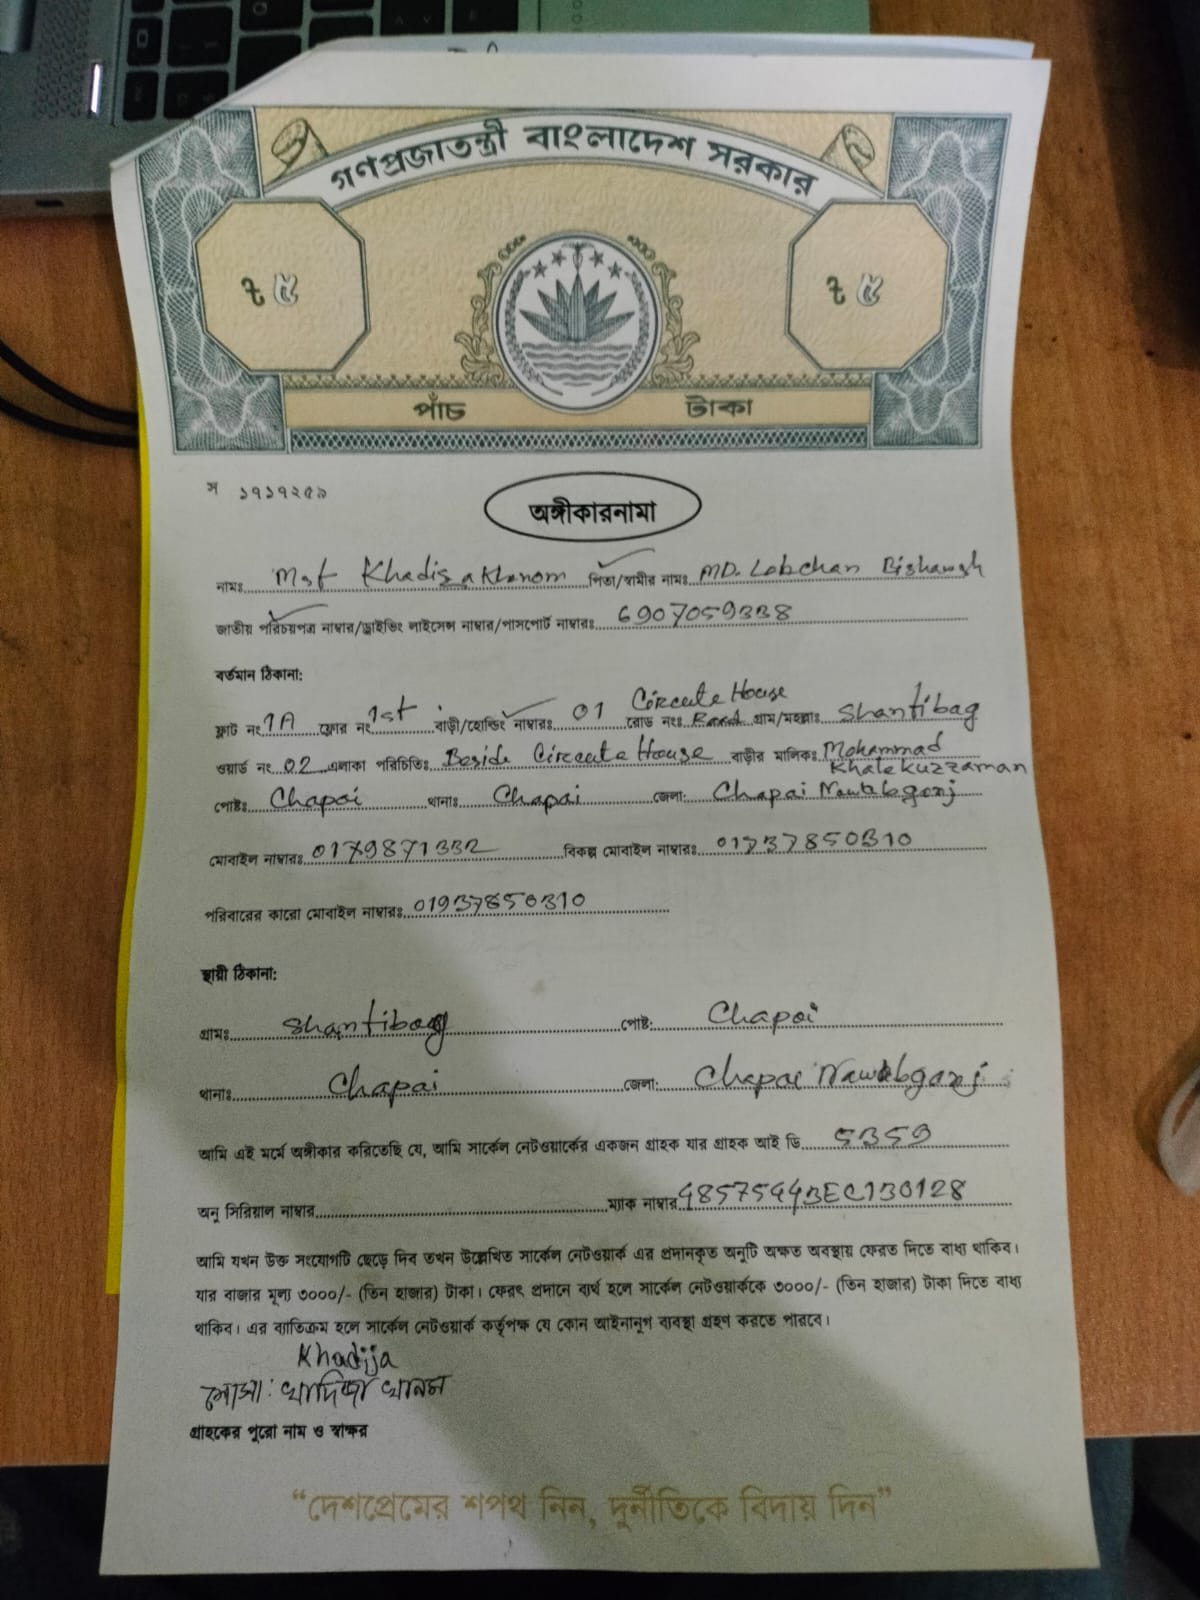 গণপ্রজাতন্ত্রী বাংলাদেশ সরকার
৳ ৫ ৳ ৫
পাঁচ টাকা
স ১৭১৭২৫৯
অঙ্গীকারনামা
নামঃ Mst Khadiza Khanom পিতা/স্বামীর নামঃ MD. Lobchan Bishawsh
জাতীয় পরিচয়পত্র নাম্বার/ড্রাইভিং লাইসেন্স নাম্বার/পাসপোর্ট নাম্বারঃ 6907059338
বর্তমান ঠিকানা:
ফ্লাট নং 1A ফ্লোর নং 1st বাড়ী/হোল্ডিং নাম্বারঃ 01 রোড নংঃ Circute House Road গ্রাম/মহল্লাঃ Shantibag
ওয়ার্ড নং 02 এলাকা পরিচিতিঃ Beside Circute House বাড়ীর মালিকঃ Mohammad Khalekuzzaman
পোষ্টঃ Chapai থানাঃ Chapai জেলা: Chapai Nawabganj
মোবাইল নাম্বারঃ 0179871332 বিকল্প মোবাইল নাম্বারঃ 01737850310
পরিবারের কারো মোবাইল নাম্বারঃ 01937850310
স্থায়ী ঠিকানা:
গ্রামঃ Shantibag পোষ্ট: Chapai
থানাঃ Chapai জেলা: Chapai Nawabganj
আমি এই মর্মে অঙ্গীকার করিতেছি যে, আমি সার্কেল নেটওয়ার্কের একজন গ্রাহক যার গ্রাহক আই ডি 5359
অনু সিরিয়াল নাম্বার ম্যাক নাম্বার 48575443EC130128
আমি যখন উক্ত সংযোগটি ছেড়ে দিব তখন উল্লেখিত সার্কেল নেটওয়ার্ক এর প্রদানকৃত অনুটি অক্ষত অবস্থায় ফেরত দিতে বাধ্য থাকিব।
যার বাজার মূল্য ৩০০০/- (তিন হাজার) টাকা। ফেরৎ প্রদানে ব্যর্থ হলে সার্কেল নেটওয়ার্ককে ৩০০০/- (তিন হাজার) টাকা দিতে বাধ্য
থাকিব। এর ব্যাতিক্রম হলে সার্কেল নেটওয়ার্ক কর্তৃপক্ষ যে কোন আইনানুগ ব্যবস্থা গ্রহণ করতে পারবে।
Khadija
মোসা: খাদিজা খানম
গ্রাহকের পুরো নাম ও স্বাক্ষর
“দেশপ্রেমের শপথ নিন, দুর্নীতিকে বিদায় দিন”